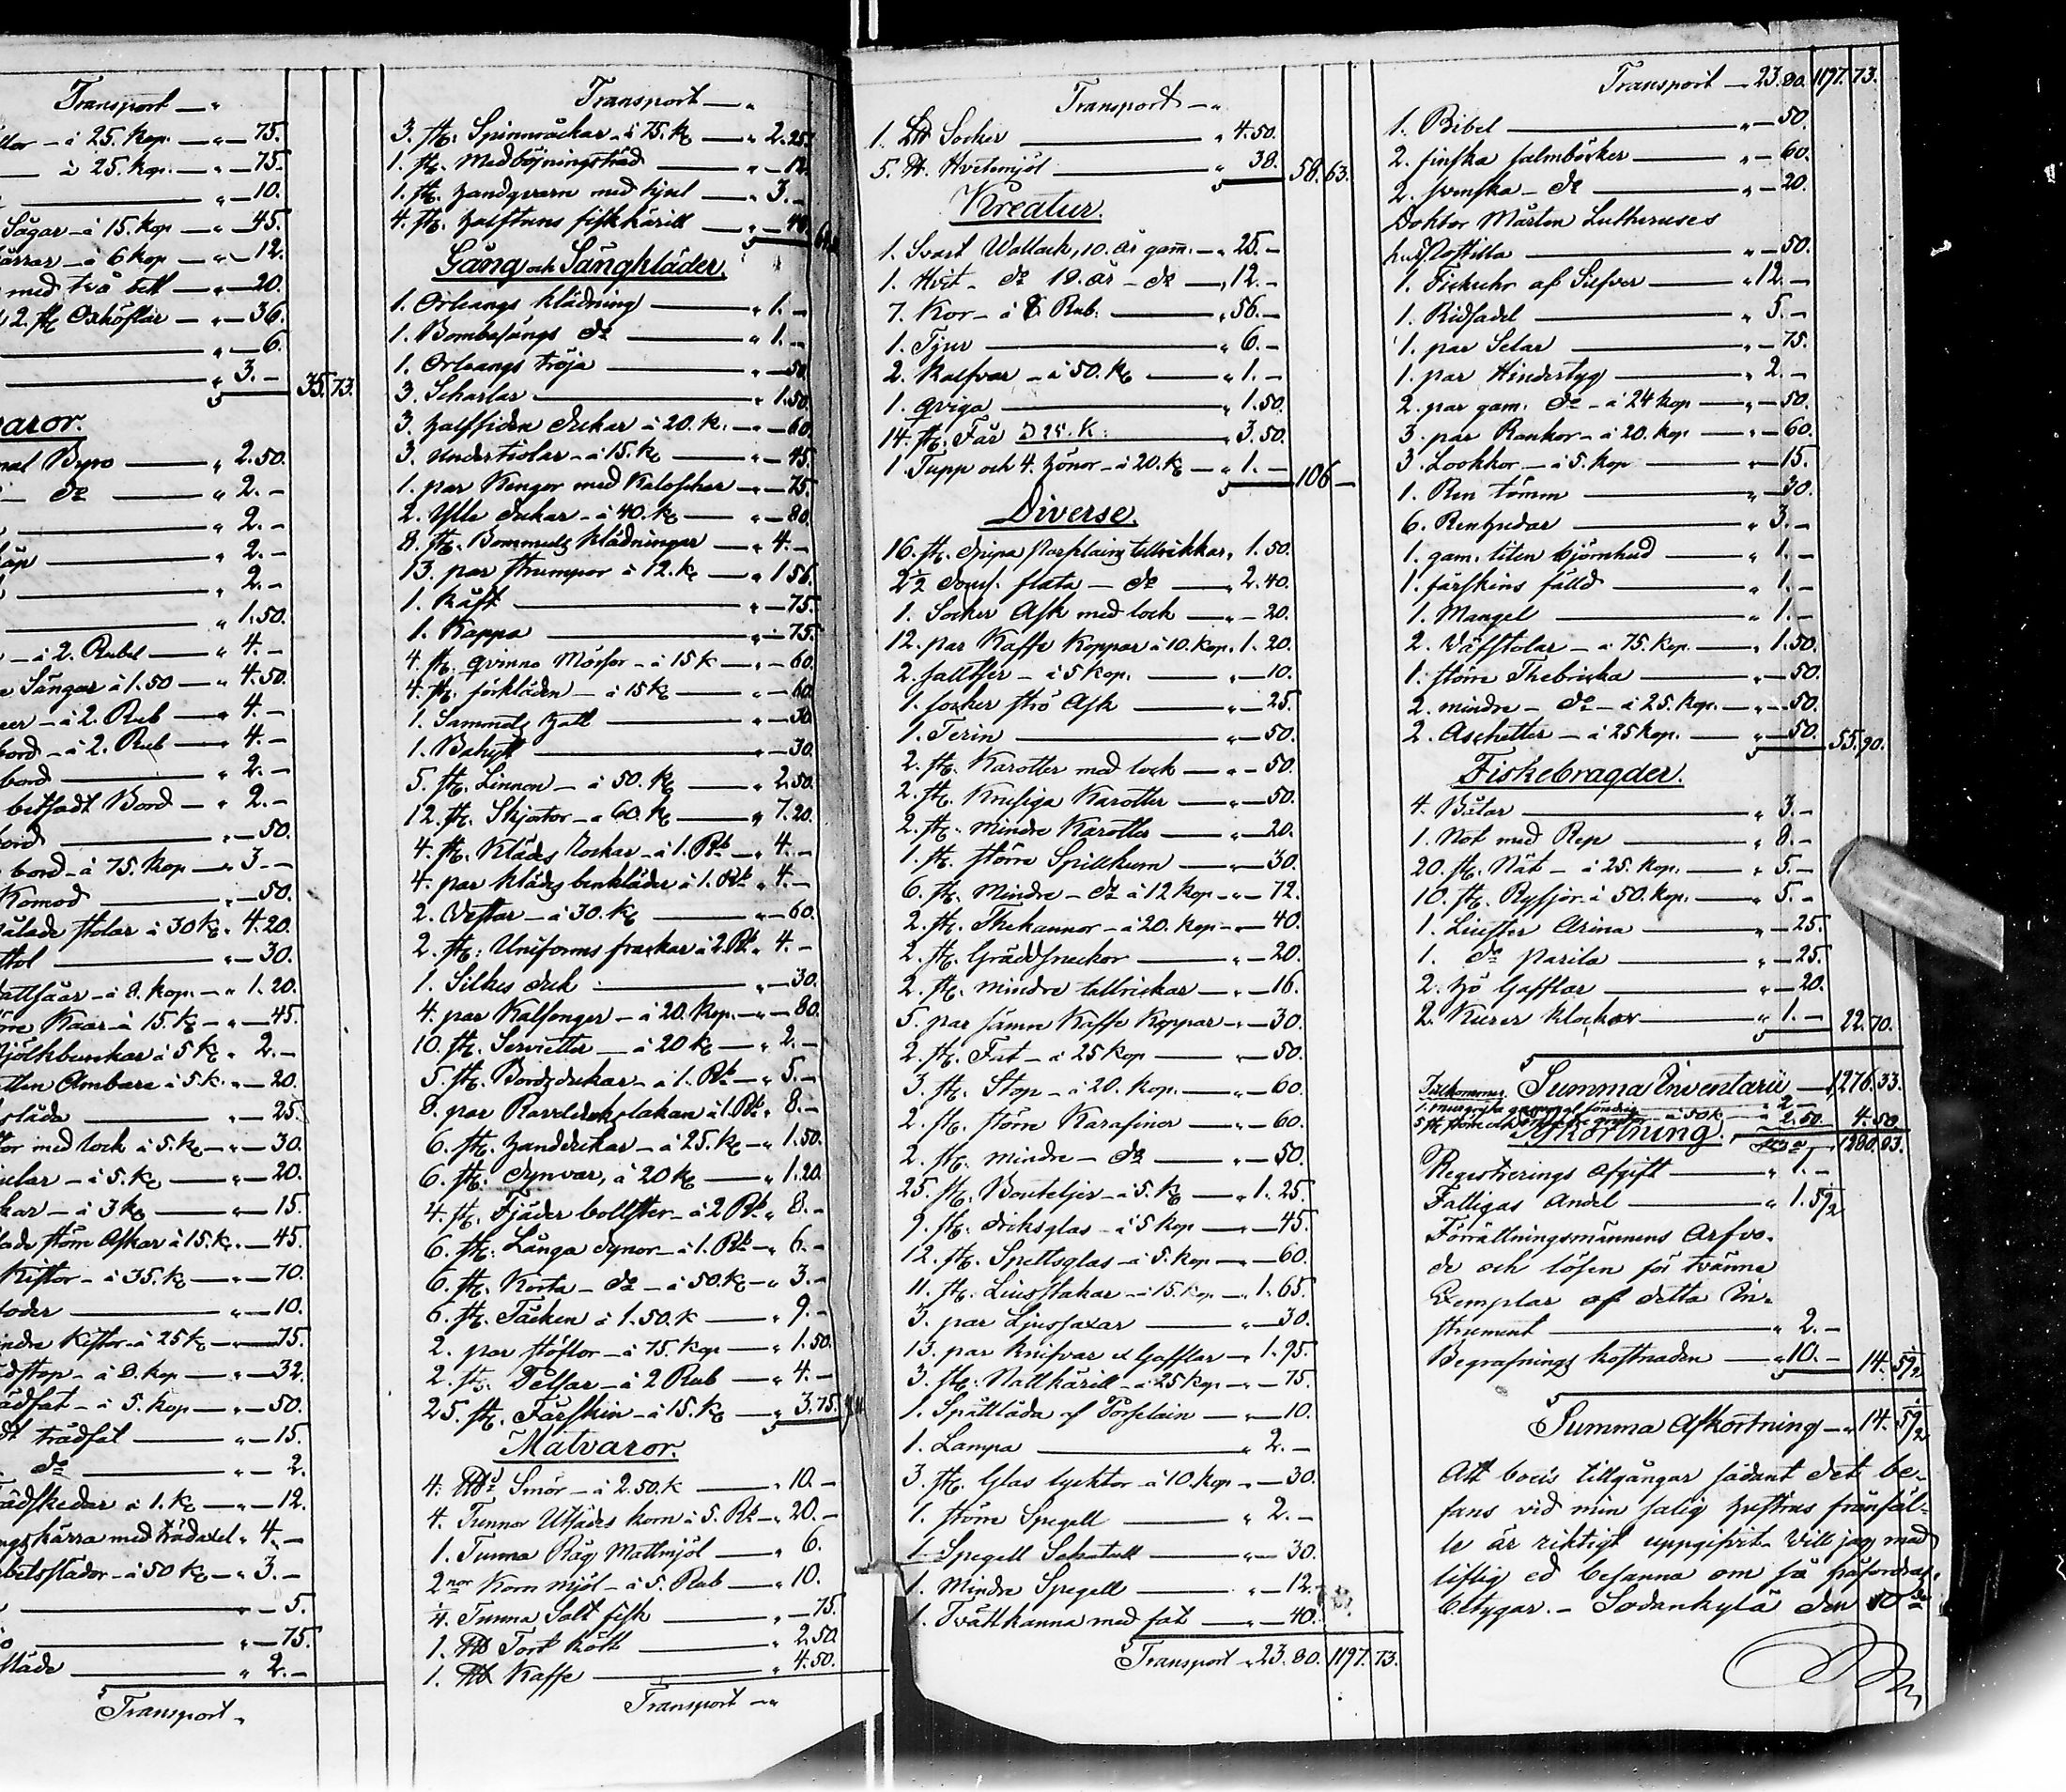 Transport — "
à 25. kop. — " — 75.
à 25. kop. — " — 75.
" — 10.
Sågar — à 15. kop — " — 45.
à 6 kop — " — 12.
med två bett — " — 20.
2. st. Oxhöflar — " — 36.
" — 6.
" 3. — 35. 73.
Byro — " 2.50.
do — " 2. —
" 2. —
" 2. —
" 2. —
" 1.50.
— à 2. Rubel — " 4. —
Sängar à 1.50 — " 4.50.
— à 2. Rub — " 4. —
bord — à 2. Rub — " 4. —
bord — " 2. —
betsadt Bord — " 2. —
" — 50.
bord — à 75. kop — " 3 —
Komod — " — 50.
stolar à 30 k. " 4.20.
stol — " — 30.
à 8. kop. — " 1.20.
Kaar — à 15. k. — " — 45.
à 5 k. " 2. —
Ambare à 5 k. " — 20.
" — 25.
med lock à 5. k. — " — 30.
— à 5. k. — " — 20.
— à 3 k. — " — 15.
större Askar à 15. k. " — 45.
Kistor — à 35. k. — " — 70.
" — 10.
Kistor à 25 k. — " — 75.
— à 8. kop — " — 32.
à 5. kop — " — 50.
trädfat — " — 15.
do — " — 2.
à 1. k. — " — 12.
kärra med trädaxel " 4. —
à 50 k. — " 3. —
" — 5.
" — 75.
" 2. —
Transport "
Transport — "
3. st. Spinnråckar — à 75. k. — " 2.25.
1. st. Medböjningsträd — " — 12.
1. st. Handqvarn med hjul — " 3. —
4. st. Halftuns fiskkärill — " — 40.
Gång och Sängkläder.
1. Orleangs klädning — " 1. —
1. Bombasängs do — " 1. —
1. Orleangs tröja — " — 50.
3. Scharlar — " 1.50.
3. Halfsiden dukar — à 20. k. — " — 60.
3. Undertiolar — à 15. k. — " — 45.
1. par Kengor med Kaloscher — " — 75.
2. Ylle dukar — à 40. k. — " — 80.
8. st. Bommuls klädningar — " 4. —
13. par strumpor à 12. k. — " 1 56.
1. Käft — " — 75.
1. Kappa — " — 75.
4. st. qvinno Mössor — à 15 k — " — 60.
4. st. förkläden — à 15 k. — " — 60.
1. Sammets Hatt — " — 30.
1. Bahytt — " — 30.
5. st. Linnon — à 50. k. — " 2.50.
12. st. Skjortor — à 60. k. — " 7.20.
4. st. Klädes Rockar — à 1. Rb — " 4. —
4. par klädes benkläder à 1. Rb. " 4. —
2. Vestar — à 30. k. — " — 60.
2. st. Uniforms frackar à 2. Rb " 4. —
1. Silkes duk — " — 30.
4. par Kalsonger — à 20. kop. — " — 80.
10. st. Servietter — à 20 k. — " 2. —
5. st. Bordsdukar — à 1. Rb — " 5. —
8. par lakan à 1. Rb. " 8. —
6. st. Handdukar — à 25. k. — " 1.50.
6. st. dynvar, à 20 k. — " 1.20.
4. st. Fjäder bollster — à 2 Rb. " 8. —
6. st. Långa dynor — à 1. Rb. — " 6. —
6. st. Korta — do — à 50. k. — " 3. —
6. st. Täcken à 1.50. k — " 9. —
2. par stöflor — à 75. kop — " 1.50.
2. st. Pelsar — à 2 Rub — " 4. —
25. st. Fårskin — à 15. k. — " 3.75.
Matvaror.
4. Smör — à 2.50. k — " 10. —
4. Tunnor Utsädes korn à 5. Rb — " 20. —
1. Tunna Råg Mattmjöl — " 6.
2nor Korn mjöl — à 5. Rub — " 10.
Tunna Salt fisk — " — 75.
1. Tort kött — " 2.50.
1. Kaffe — " 4.50.
Transport — "
Transport — "
1. Socker — " 4.50.
5. Hvetemjöl — " 38. 58. 63.
Kreatur.
1. Svart Wallack, 10. år gam. — " 25. —
1. Hvit — do 19. år — do — " 12. —
7. Kor — à 8. Rub. — " 56. —
1. Tjur — " 6. —
2. Kalfvar — à 50. k. — " 1. —
1. qviga — " 1.50.
14. st. Får à 25. k. — " 3.50.
1. Tupp och 4. Hönor — à 20. k. — " 1. — 106 —
Diverse.
16. st. djupa Porslains tallrikkar " 1.50.
2½ dous. flata — do — " 2.40.
1. Socker Ask med lock — " — 20.
12. par Kaffe Koppar à 10. kop. 1.20.
2. saltser — à 5 kop. — " — 10.
1. socker strö Ask — " — 25.
1. Terin — " — 50.
2. st. Karotter med lock — " — 50.
2. st. Krusiga Karotter — " — 50.
2. st. mindre Karotter — " — 20.
1. st. större Spillkum — " — 30.
6. st. Mindre — do à 12 kop — " — 72.
2. st. Thekannor — à 20. kop — " — 40.
2. st. Gräddsneckor — " — 20.
2. st. mindre tallrickar — " — 16.
5. par sämre Kaffe Koppar — " — 30.
2. st. Fat — à 25 kop — " — 50.
3. st. Stop — à 20. kop. — " — 60.
2. st. större Karafinor — " — 60.
2. st. mindre — do — " — 50.
25. st. Bouteljer — à 5. k. — " 1. 25.
9. st. driksglas — à 5 kop — " — 45.
12. st. Spettsglas — à 5. kop — " — 60.
11. st. Liusstakar — à 15. kop — " 1. 65.
3. par Ljussaxar — " — 30.
13. par Knifvar et Gafflar — " 1.95.
3. st. Nattkärill — à 25 kop — " — 75.
1. Spåttlåda af Porselain — " — 10.
1. Lampa — " 2. —
3. st. Glas lycktor à 10. kop — " — 30.
1. större Spegell — " 2. —
1. Spegell Schatull — " — 30.
1. Mindre Spegell — " — 12.
1. Tvättkanna med fat — " — 40.
Transport " 23. 80. 1197. 73.
Transport — 23.80. 1197. 73.
1. Bibel — " — 50.
2. finska salmböcker — " — 60.
2. svenska — do — " — 20.
Doktor Mårten Lutheruses
huspostilla — " — 50.
1. Fickuhr af Silfver — " 12. —
1. Ridsadel — " 5. —
1. par Selar — " — 75.
1. par Hindertyg — " 2. —
2. par gam. do — à 24 kop — " — 50.
3. par Rankor — à 20. kop — " — 60.
3. Lookkor — à 5. kop — " — 15.
1. Ren tömm — " — 30.
6. Renhudar — " 3. —
1. gam. liten björnhud — " 1. —
1. fårskins fälld — " 1. —
1. Mangel — " 1. —
2. Väfstolar — à 75. kop. — " 1.50.
1. större Thebricka — " — 50.
2. mindre — do — à 25. kop. — " — 50.
2. Aschetter — à 25 kop. — " — 50. 55. 90.
Fiskebragder.
4. Båtar — " 3. —
1. Not med Rep — " 8. —
20. st. Nät — à 25. kop. — " 5. —
10. st. Rysjor à 50. kop. — " 5. —
1. Liuster Arina — " — 25.
1. do parila — " — 25.
2. Hö Gafflar — " — 20.
2. Kurer klockor — " 1. — 22. 70.
Summa Inventarii — 1,276. 33.
Tillkommer
à 50 k. — " 2.50. 4. 50.
Afkortning. 1280. 83.
Registrerings afgift — " 1. —
Fattigas andel — " 1. 59½
Förrättningsmännens Arfvo-
de och lösen för tvänne
Exemplar af detta In-
strument — " 2. —
Begrafnings kostnaden — " 10. — 14. 59½
Summa Afkortning — " 14. 59½
Att boeis tillgångar sådant det be-
fans vid min salig hustrus frånfäl-
le är riktigt uppgifvit. Vill jag med
liflig ed besanna om så påfordras.
betygar. — Sodankylä den